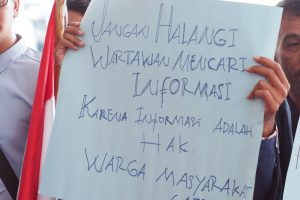 JANGAN HALANGI
WARTAWAN MENCARI
INFORMASI
KARENA INFORMASI ADALAH
HAK.
WARGA MASYARAKAT